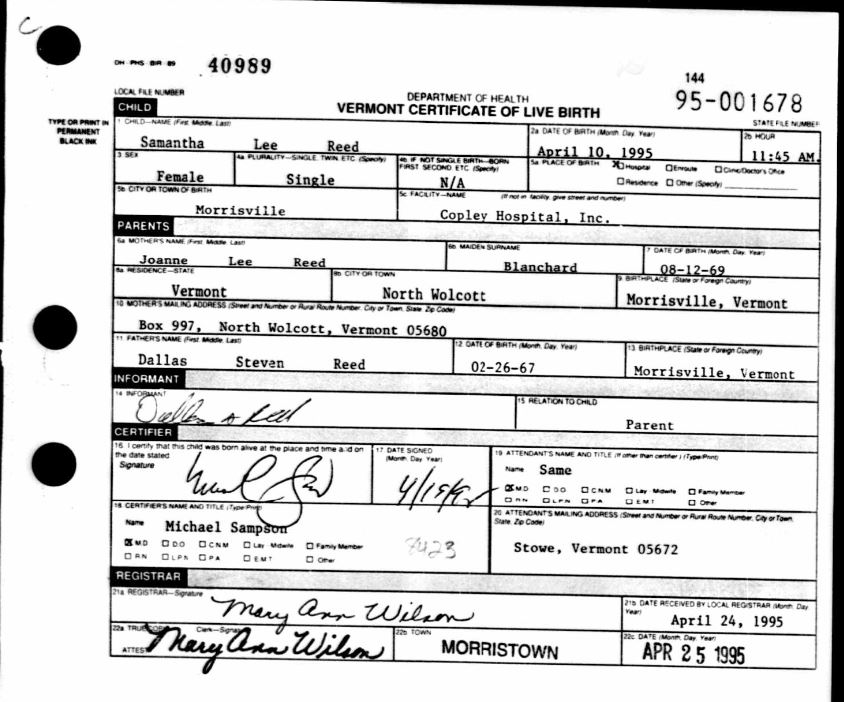 C
OH - PHS - BIR - 89 40989
144
LOCAL FILE NUMBER
DEPARTMENT OF HEALTH
95-001678
CHILD
VERMONT CERTIFICATE OF LIVE BIRTH
STATE FILE NUMBER
TYPE OR PRINT IN
PERMANENT
BLACK INK
1 CHILD—NAME (First, Middle, Last) 2a DATE OF BIRTH (Month, Day, Year) 2b HOUR
Samantha Lee Reed April 10, 1995 11:45 AM.
3 SEX 4a PLURALITY—SINGLE, TWIN, ETC. (Specify) 4b IF NOT SINGLE BIRTH—BORN FIRST, SECOND, ETC. (Specify) 5a PLACE OF BIRTH X Hospital Enroute Clinic/Doctor's Office
Female Single N/A Residence Other (Specify)
5b CITY OR TOWN OF BIRTH 5c FACILITY—NAME (If not in facility, give street and number)
Morrisville Copley Hospital, Inc.
PARENTS
6a MOTHER'S NAME (First, Middle, Last) 6b MAIDEN SURNAME 7 DATE OF BIRTH (Month, Day, Year)
Joanne Lee Reed Blanchard 08-12-69
8a RESIDENCE—STATE 8b CITY OR TOWN 9 BIRTHPLACE (State or Foreign Country)
Vermont North Wolcott Morrisville, Vermont
10 MOTHER'S MAILING ADDRESS (Street and Number or Rural Route Number, City or Town, State, Zip Code)
Box 997, North Wolcott, Vermont 05680
11 FATHER'S NAME (First, Middle, Last) 12 DATE OF BIRTH (Month, Day, Year) 13 BIRTHPLACE (State or Foreign Country)
Dallas Steven Reed 02-26-67 Morrisville, Vermont
INFORMANT
14 INFORMANT 15 RELATION TO CHILD
Reed Parent
CERTIFIER
16 I certify that this child was born alive at the place and time and on
the date stated
Signature
17 DATE SIGNED
(Month, Day, Year)
19 ATTENDANT'S NAME AND TITLE (If other than certifier) (Type/Print)
Name Same
X MD DO CNM Lay Midwife Family Member
RN LPN PA EMT Other
18 CERTIFIER'S NAME AND TITLE (Type/Print)
Name Michael Sampson
X MD DO CNM Lay Midwife Family Member
RN LPN PA EMT Other
8423
20 ATTENDANT'S MAILING ADDRESS (Street and Number or Rural Route Number, City or Town,
State, Zip Code)
Stowe, Vermont 05672
REGISTRAR
21a REGISTRAR—Signature 21b DATE RECEIVED BY LOCAL REGISTRAR (Month, Day,
Year)
Mary Ann Wilson April 24, 1995
22a TRUE COPY Clerk—Signature 22b TOWN 22c DATE (Month, Day, Year)
ATTEST Mary Ann Wilson MORRISTOWN APR 25 1995